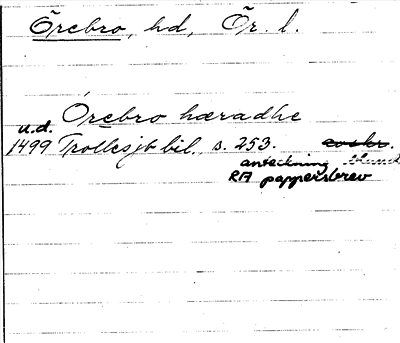 Örebro, hd, Ör. l.
Örebro hæradhe
u.d.
1499 Trollesjb bil. s. 253. avskr.
anteckning
RA pappersbrev